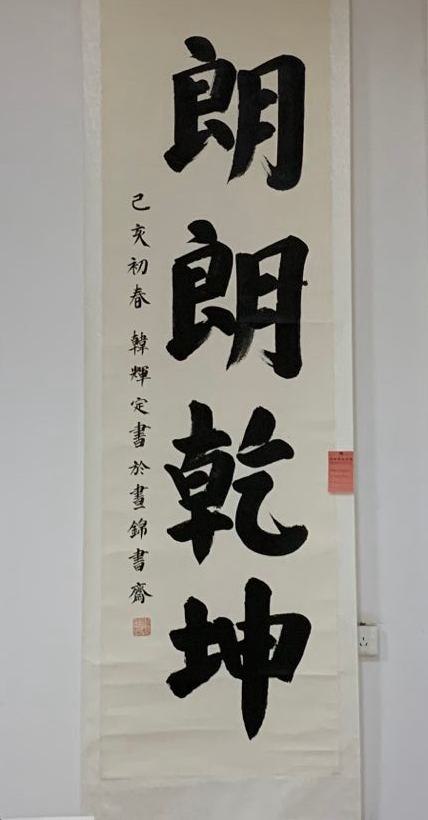 朗朗乾坤
己亥初春 韓輝定書於晝錦書齋